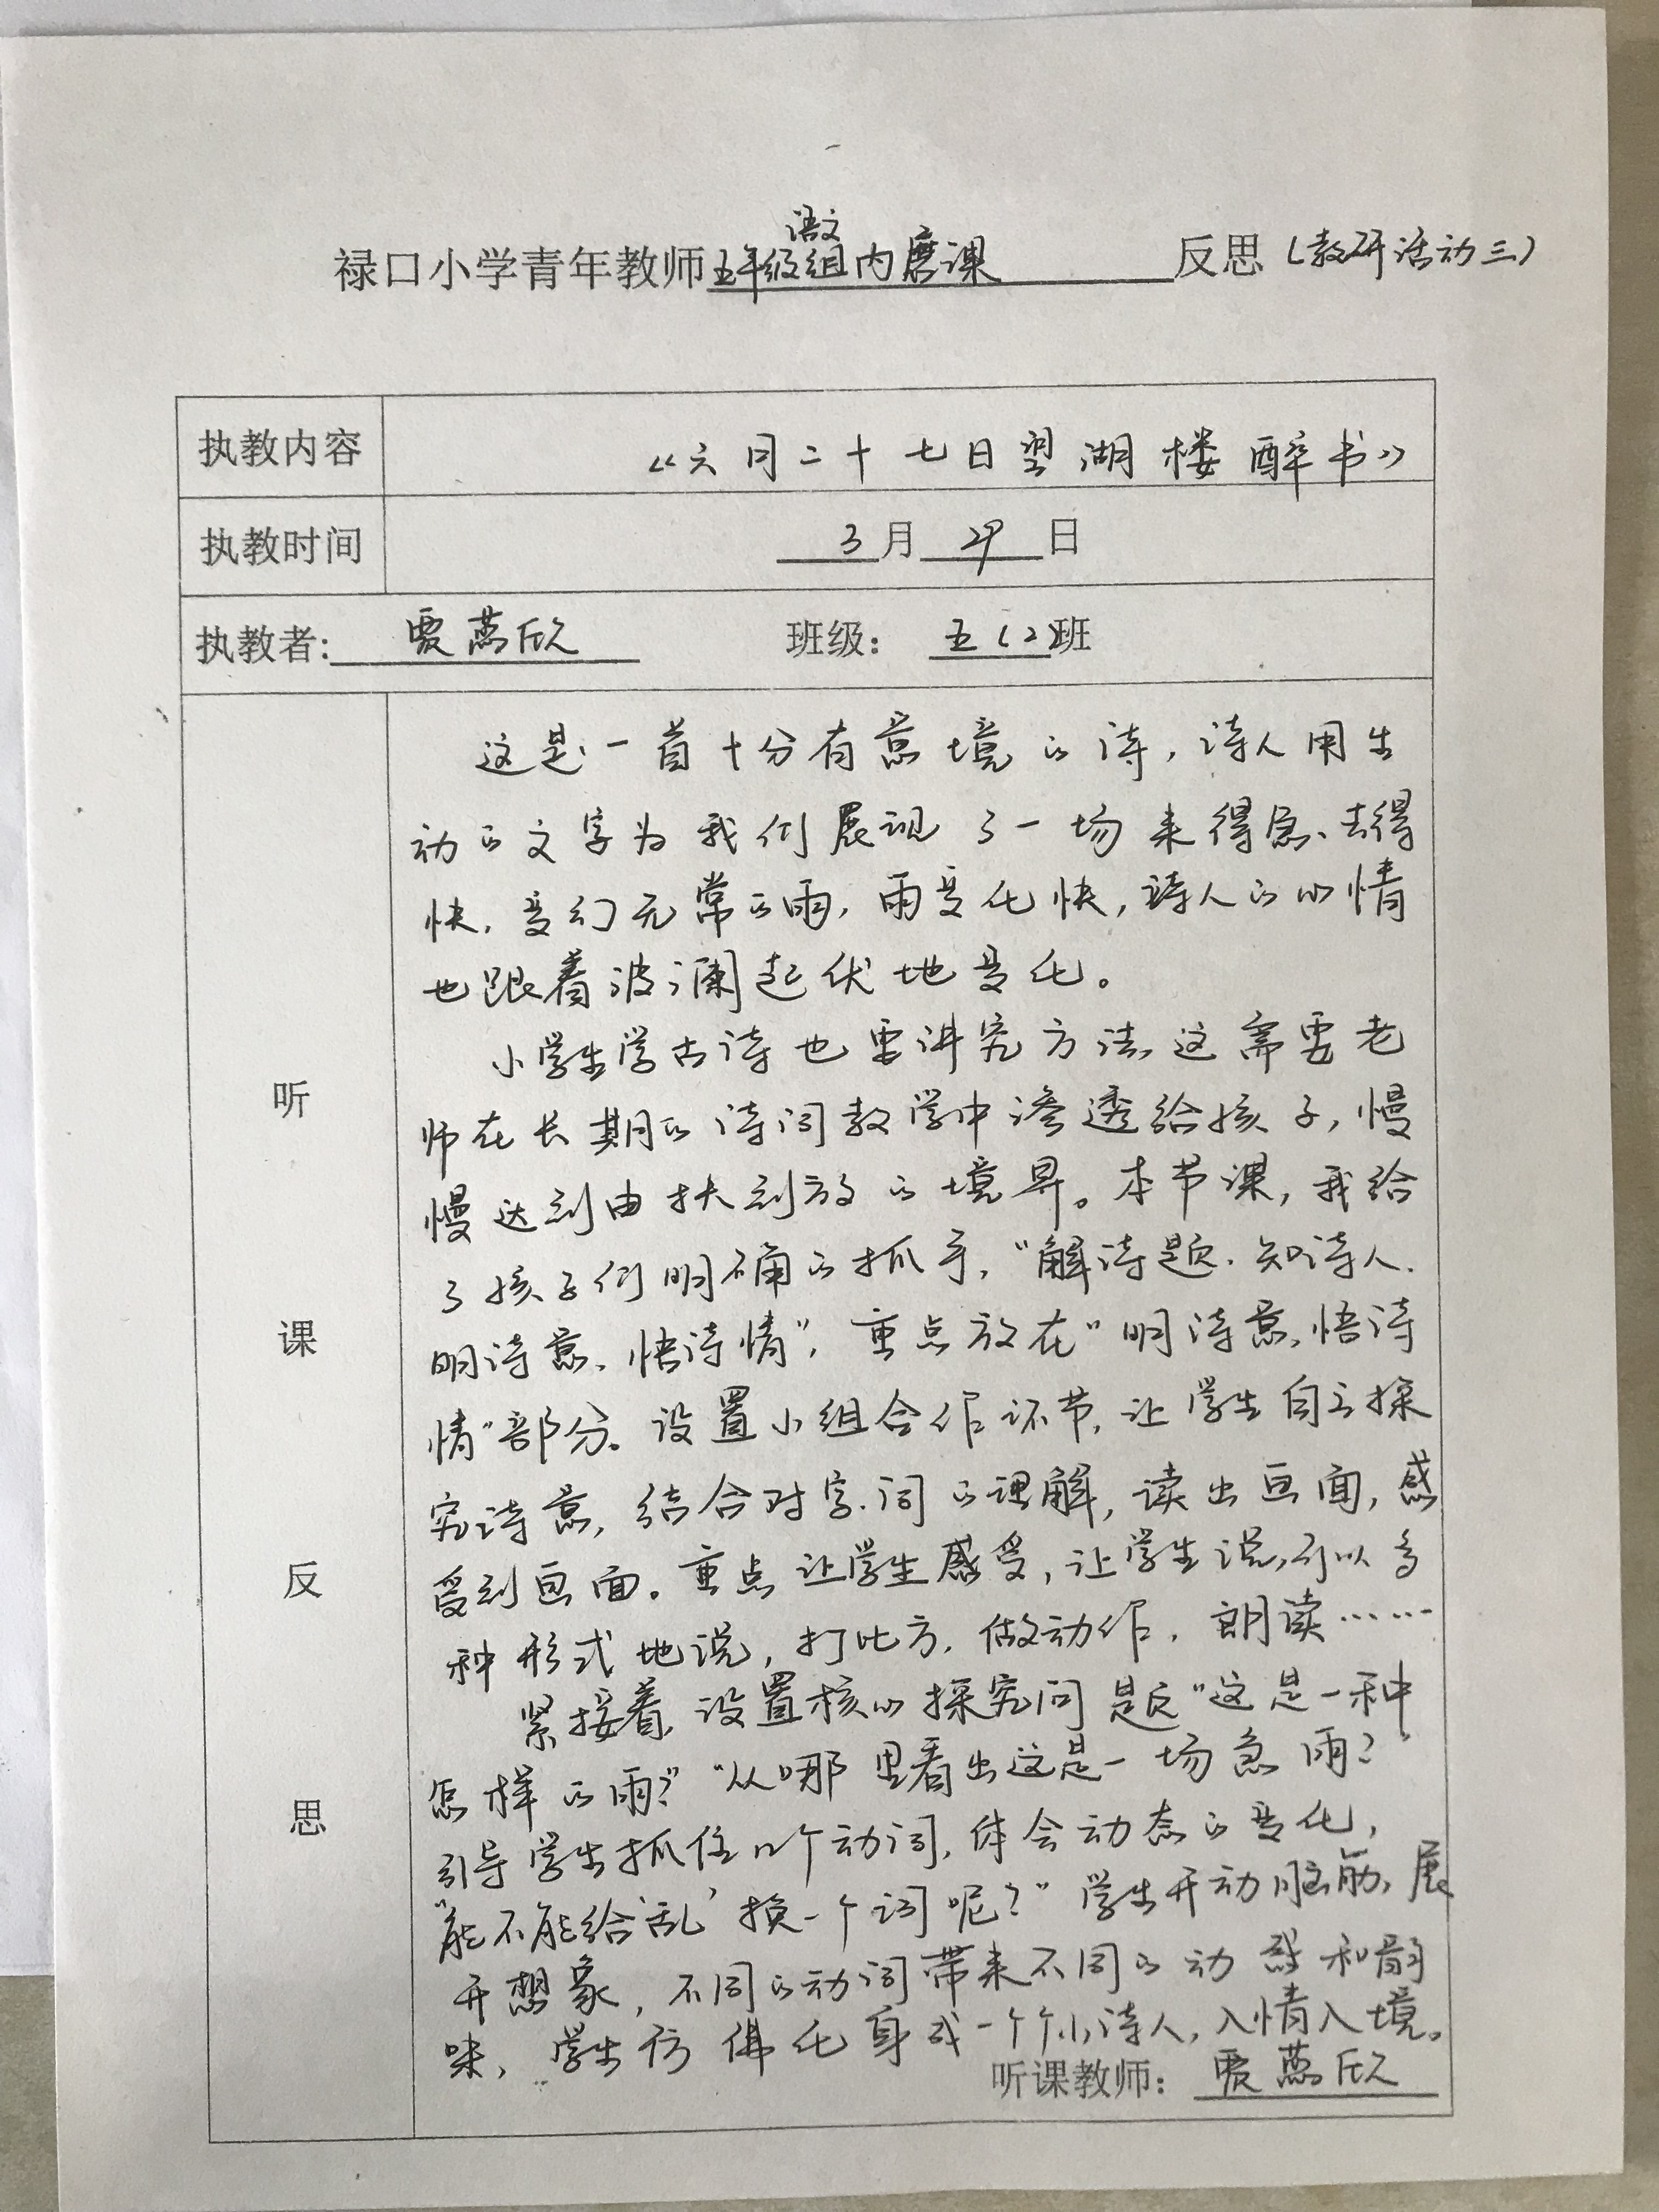 语文
禄口小学青年教师五年级组内磨课 反思(教研活动三)
执教内容 《六月二十七日望湖楼醉书》
执教时间 3月29日
执教者: 贾燕欣 班级: 五(2)班
这是一首十分有意境的诗,诗人用生
动的文字为我们展现了一场来得急、去得
快,变幻无常的雨,雨变化快,诗人的心情
也跟着波澜起伏地变化。
小学生学古诗也要讲究方法,这需要老
师在长期的诗词教学中渗透给孩子,慢
慢达到由扶到放的境界。本节课,我给
了孩子们明确的抓手,“解诗题、知诗人、
明诗意、悟诗情”,重点放在“明诗意、悟诗
情”部分。设置小组合作环节,让学生自主探
究诗意,结合对字、词的理解,读出画面,感
受到画面。重点让学生感受,让学生说,可以多
种形式地说,打比方,做动作,朗读……
紧接着,设置核心探究问题“这是一种
怎样的雨?”“从哪里看出这是一场急雨?”
引导学生抓住几个动词,体会动态的变化,
“能不能给‘乱’换一个词呢?”学生开动脑筋,展
开想象,不同的动词带来不同的动感和韵
味,学生仿佛化身成一个个小诗人,入情入境。
听课教师: 贾燕欣
听
课
反
思